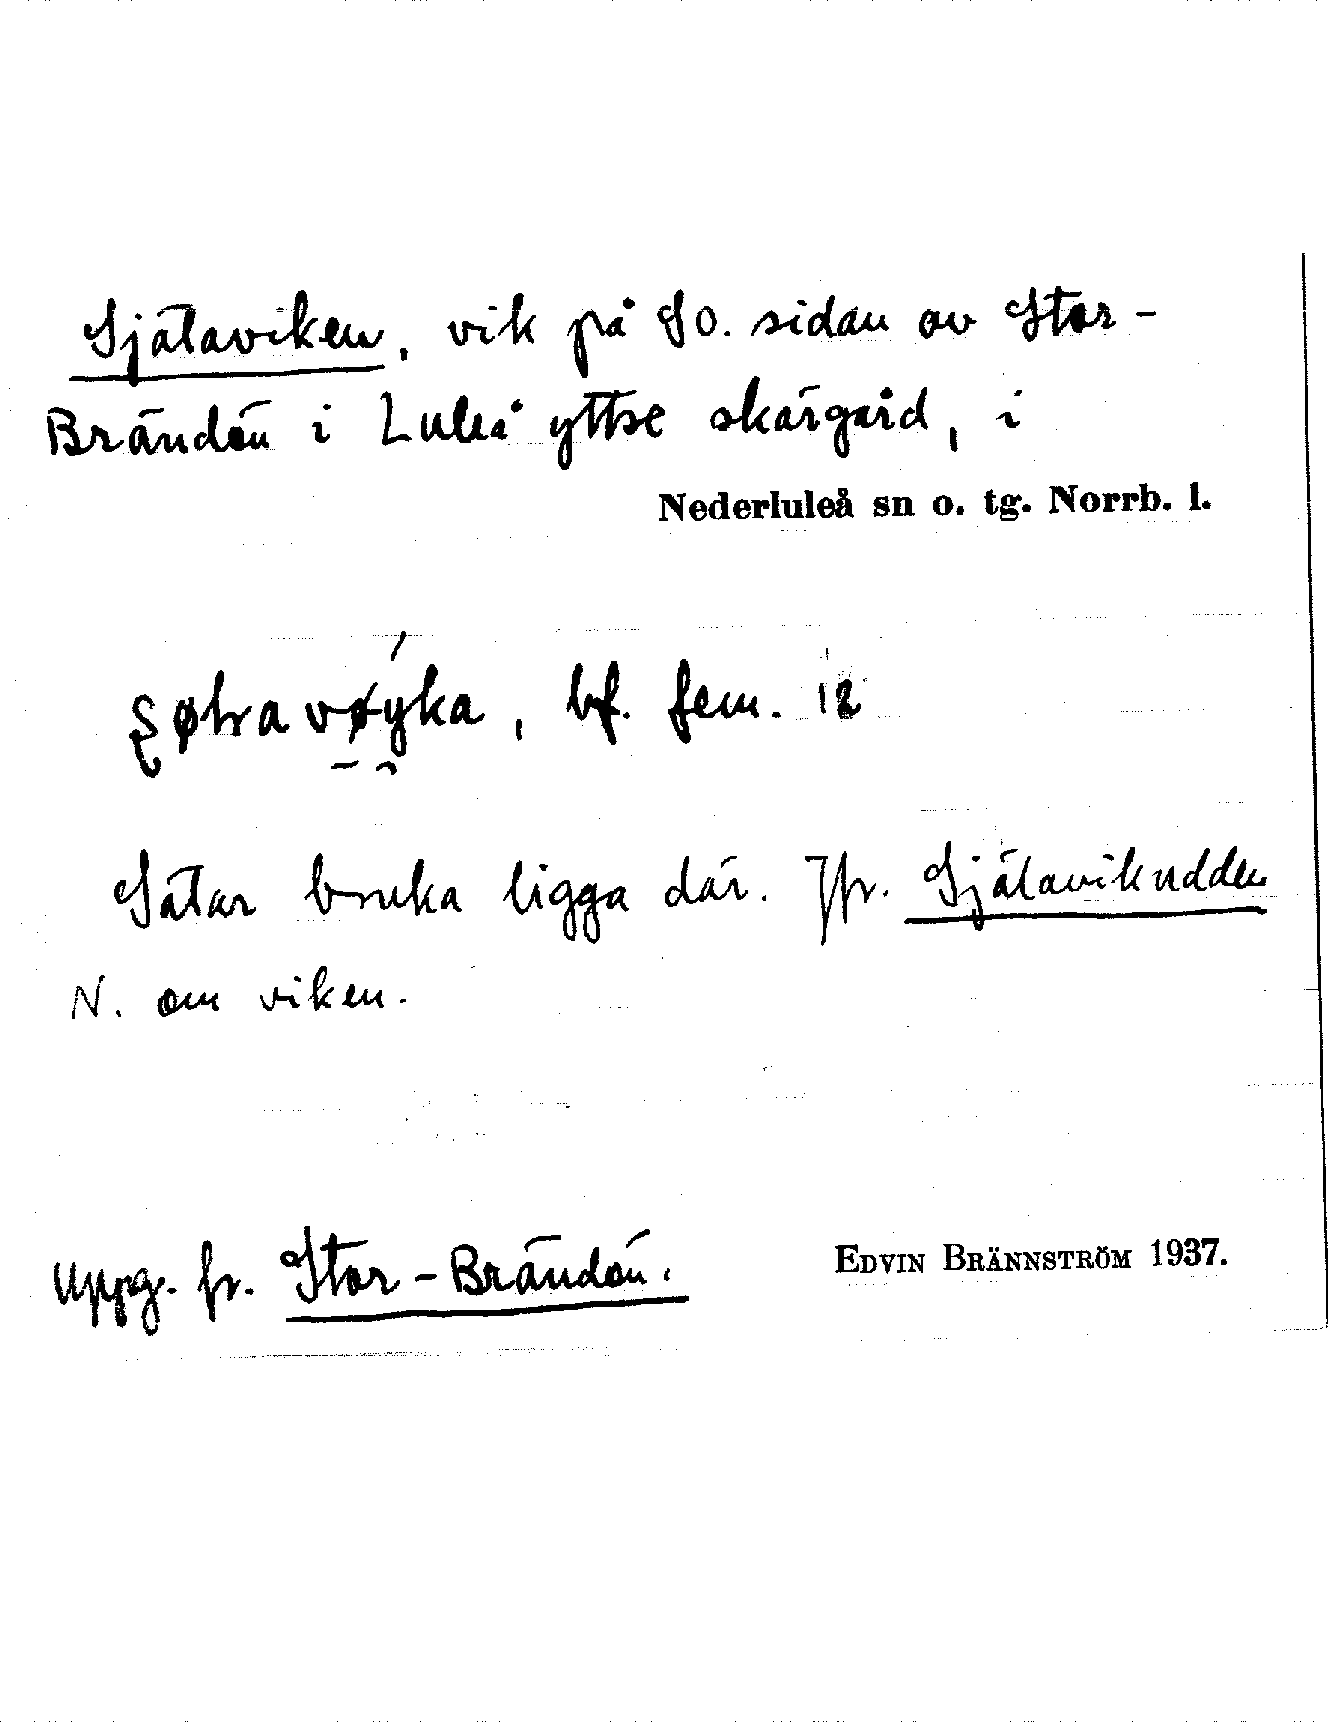 Själaviken, vik på SO. sidan av Stor-
Brändön i Luleå yttre skärgård, i
Nederluleå sn o. tg. Norrb. l.
bf. fem.
Sälar bruka ligga där. Jfr. Själavikudden
N. om viken.
Uppg. fr. Stor-Brändön.
EDVIN BRÄNNSTRÖM 1937.